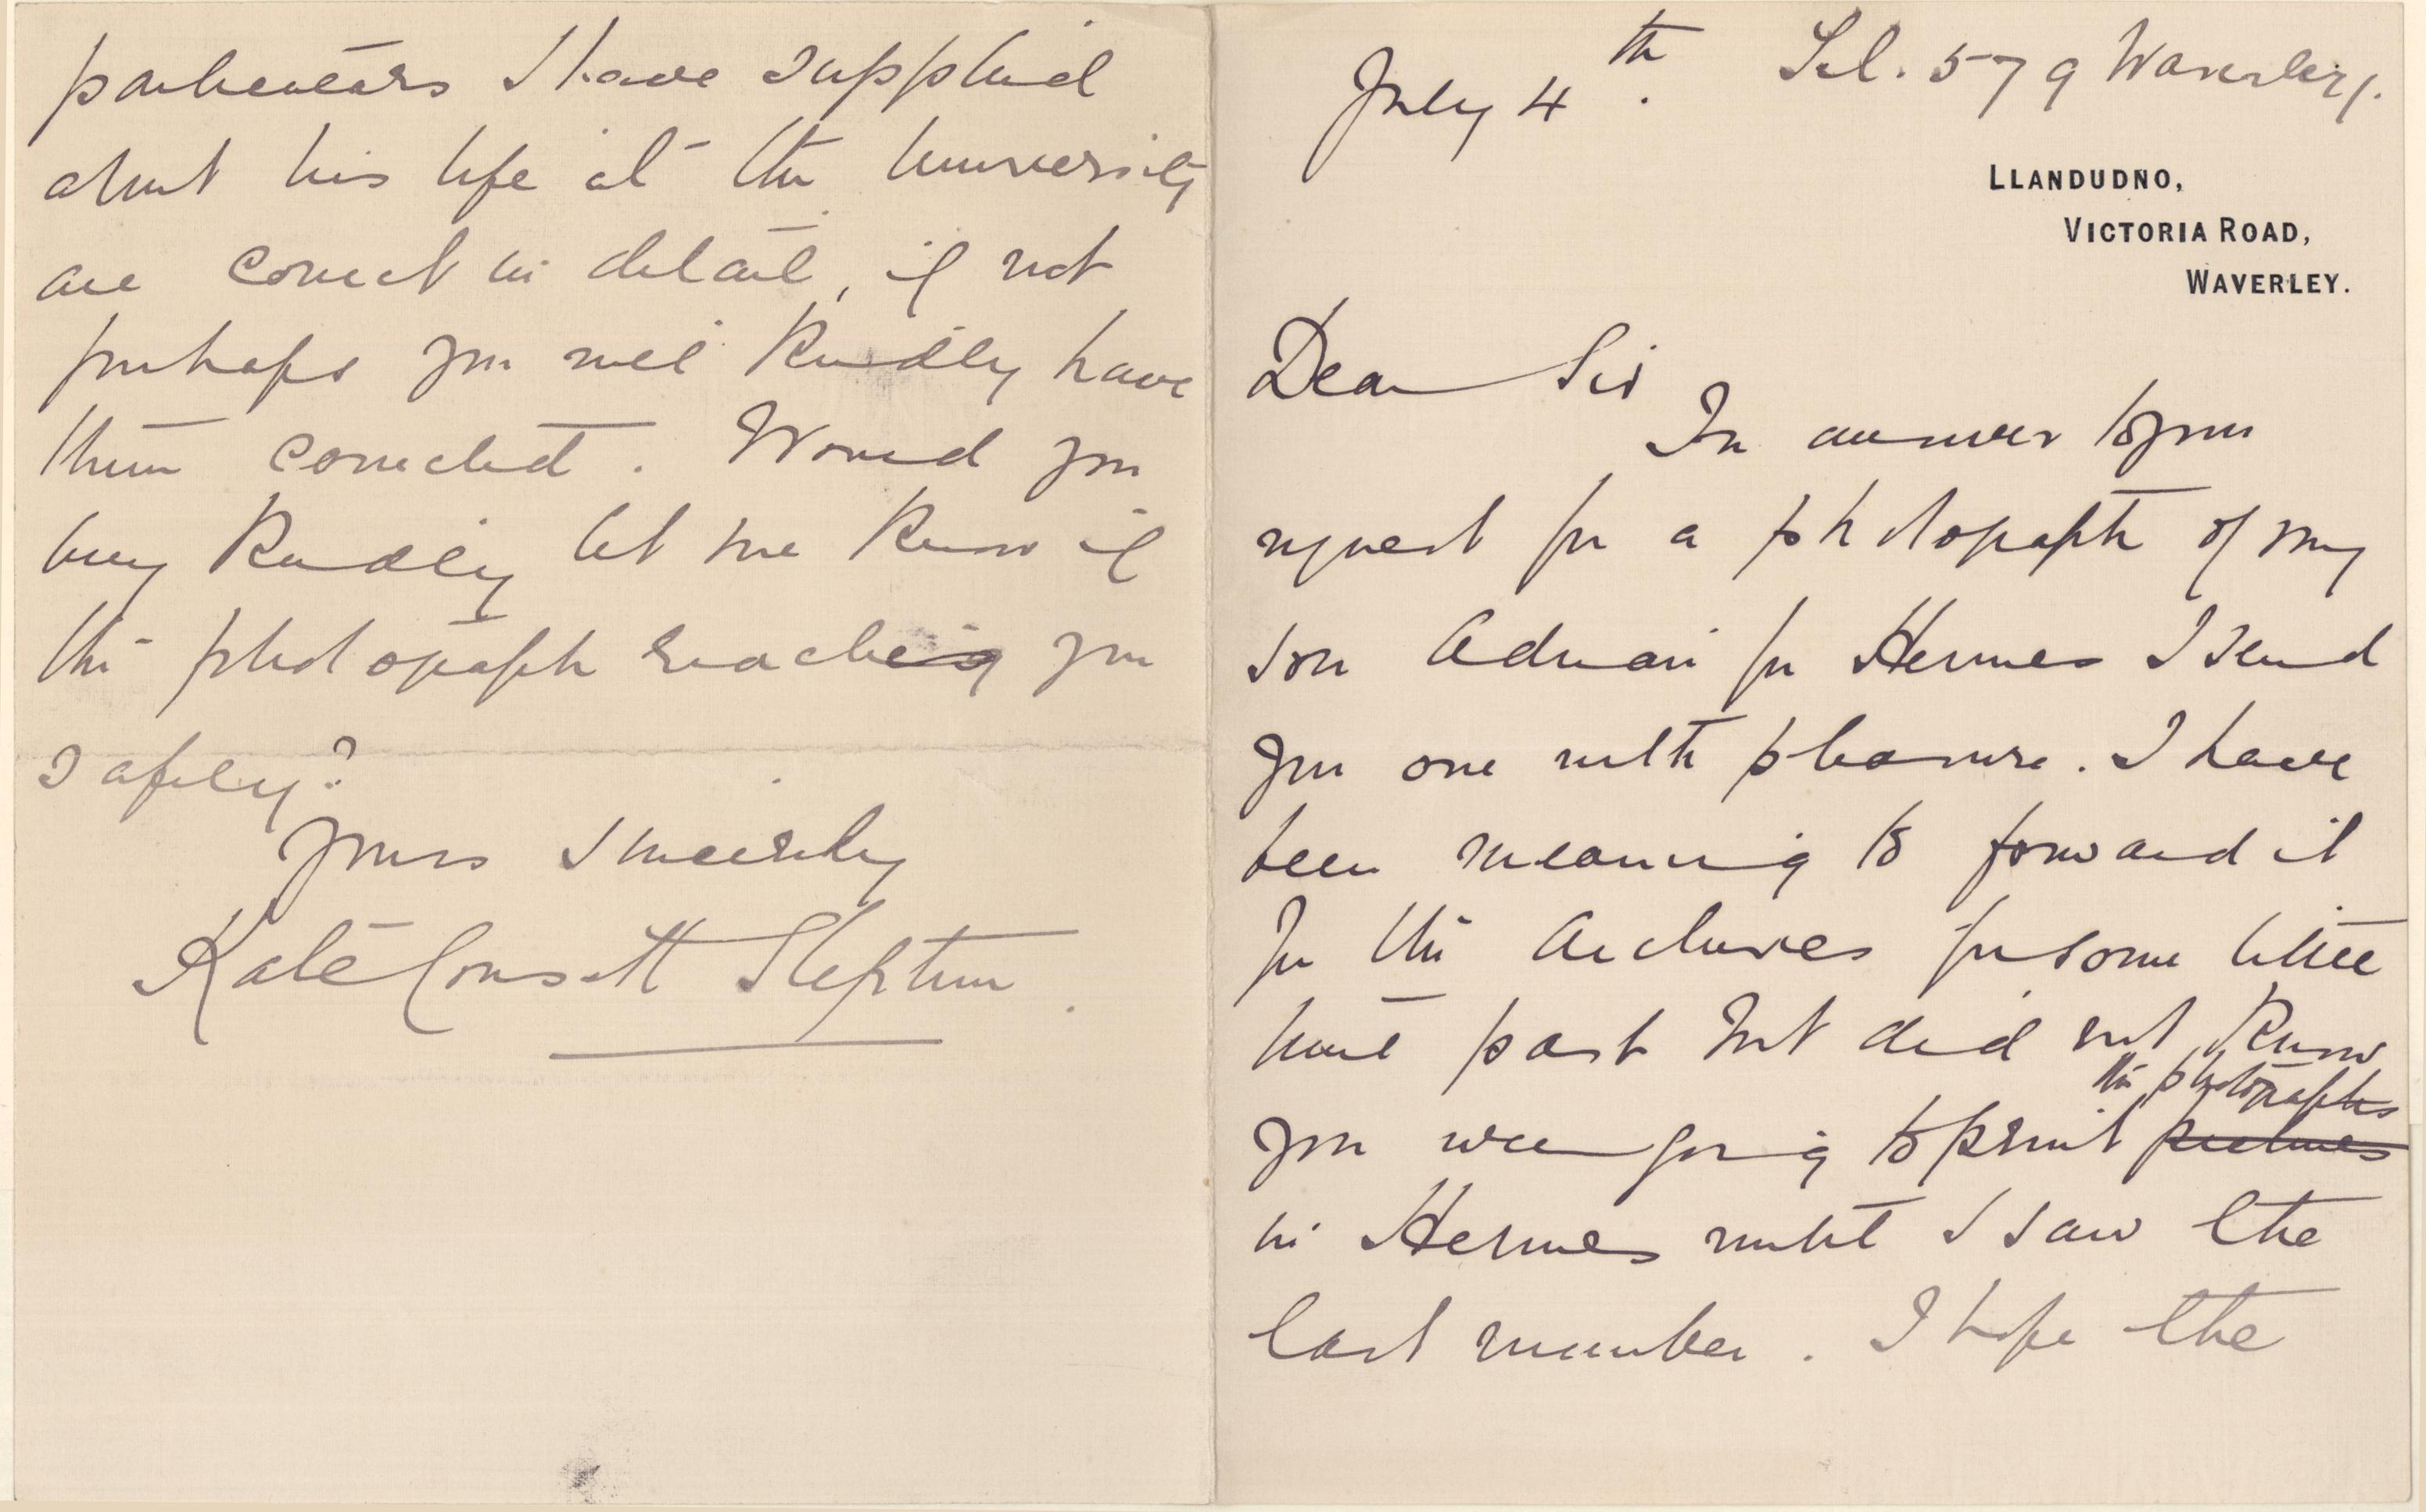 July 4th. Tel. 579 Waverley.
LLANDUDNO,
VICTORIA ROAD,
WAVERLEY.
Dear Sir
In answer to your
request for a photograph of my
son Adrian for Hermes I send
you one with pleasure. I have
been meaning to forward it
for the Archives for some little
time past but did not know
the photographs
you were going to print pictures
in Hermes until I saw the
last number. I hope the
particulars I have supplied
about his life at the University
are correct in detail, if not
perhaps you will kindly have
them corrected. Would you
very kindly let me know if
the photograph reaches you
safely?
Yours sincerely
Kate Consett Stephen.